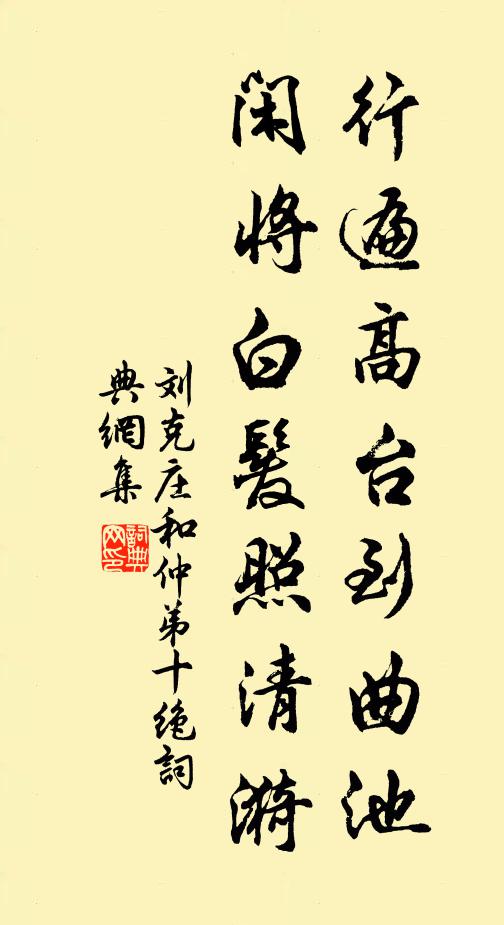 行遍高台到曲池
闲將白髮照清漪
刘克庄和仲弟十绝詞
典網集
詞典
网印